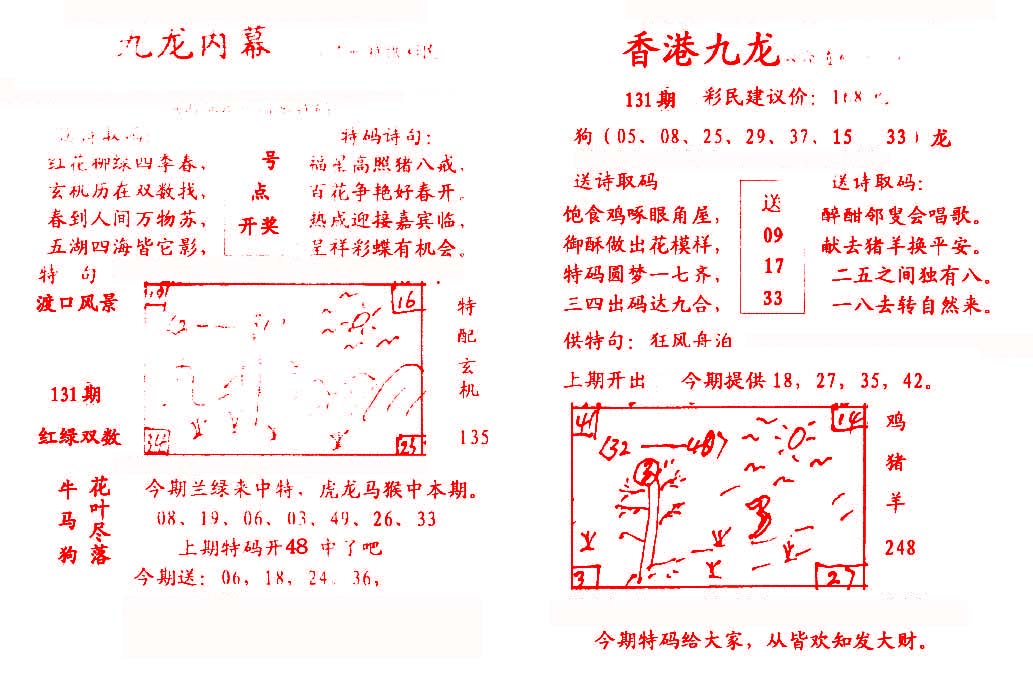 九龙内幕
特码诗句：
红花柳绿四季春，
玄机历在双数找，
春到人间万物苏，
五湖四海皆它影，
号
点
开奖
福星高照猪八戒，
百花争艳好春开。
热成迎接嘉宾临，
呈祥彩蝶有机会。
特 句
渡口风景
131期
红绿双数
16
34
23
特
配
玄
机
135
牛
马
狗
花
叶
尽
落
今期兰绿来中特，虎龙马猴中本期。
08、19、06、03、49、26、33
上期特码开48 中了吧
今期送：06，18，24，36，
香港九龙
131期 彩民建议价：168
狗（05、08、25、29、37、15 33）龙
送诗取码
饱食鸡啄眼角屋，
御酥做出花模样，
特码圆梦一七齐，
三四出码达九合，
送
09
17
33
送诗取码：
醉酣邻叟会唱歌。
献去猪羊换平安。
二五之间独有八。
一八去转自然来。
供特句：狂风舟泊
上期开出 今期提供18，27，35，42。
41
14
3
27
鸡
猪
羊
248
今期特码给大家，从皆欢知发大财。